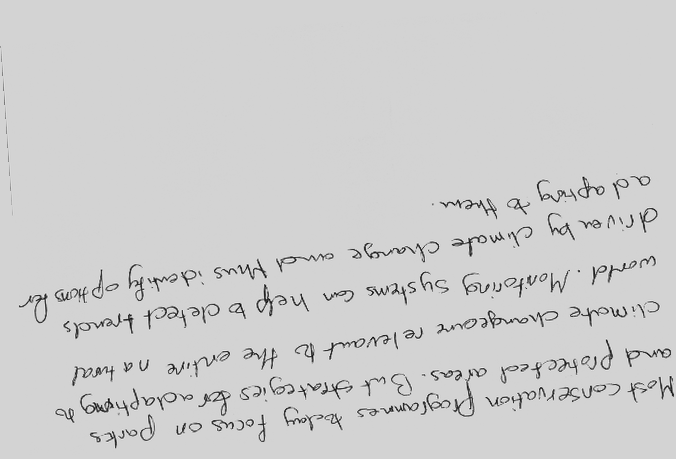 Most conservation programmes today focus on parks
and protected areas. But strategies for adapting to
climate change are relevant to the entire natural
world. Montoring systems can help to detect trends
driven by climate change and thus identify options for
adapting to them.